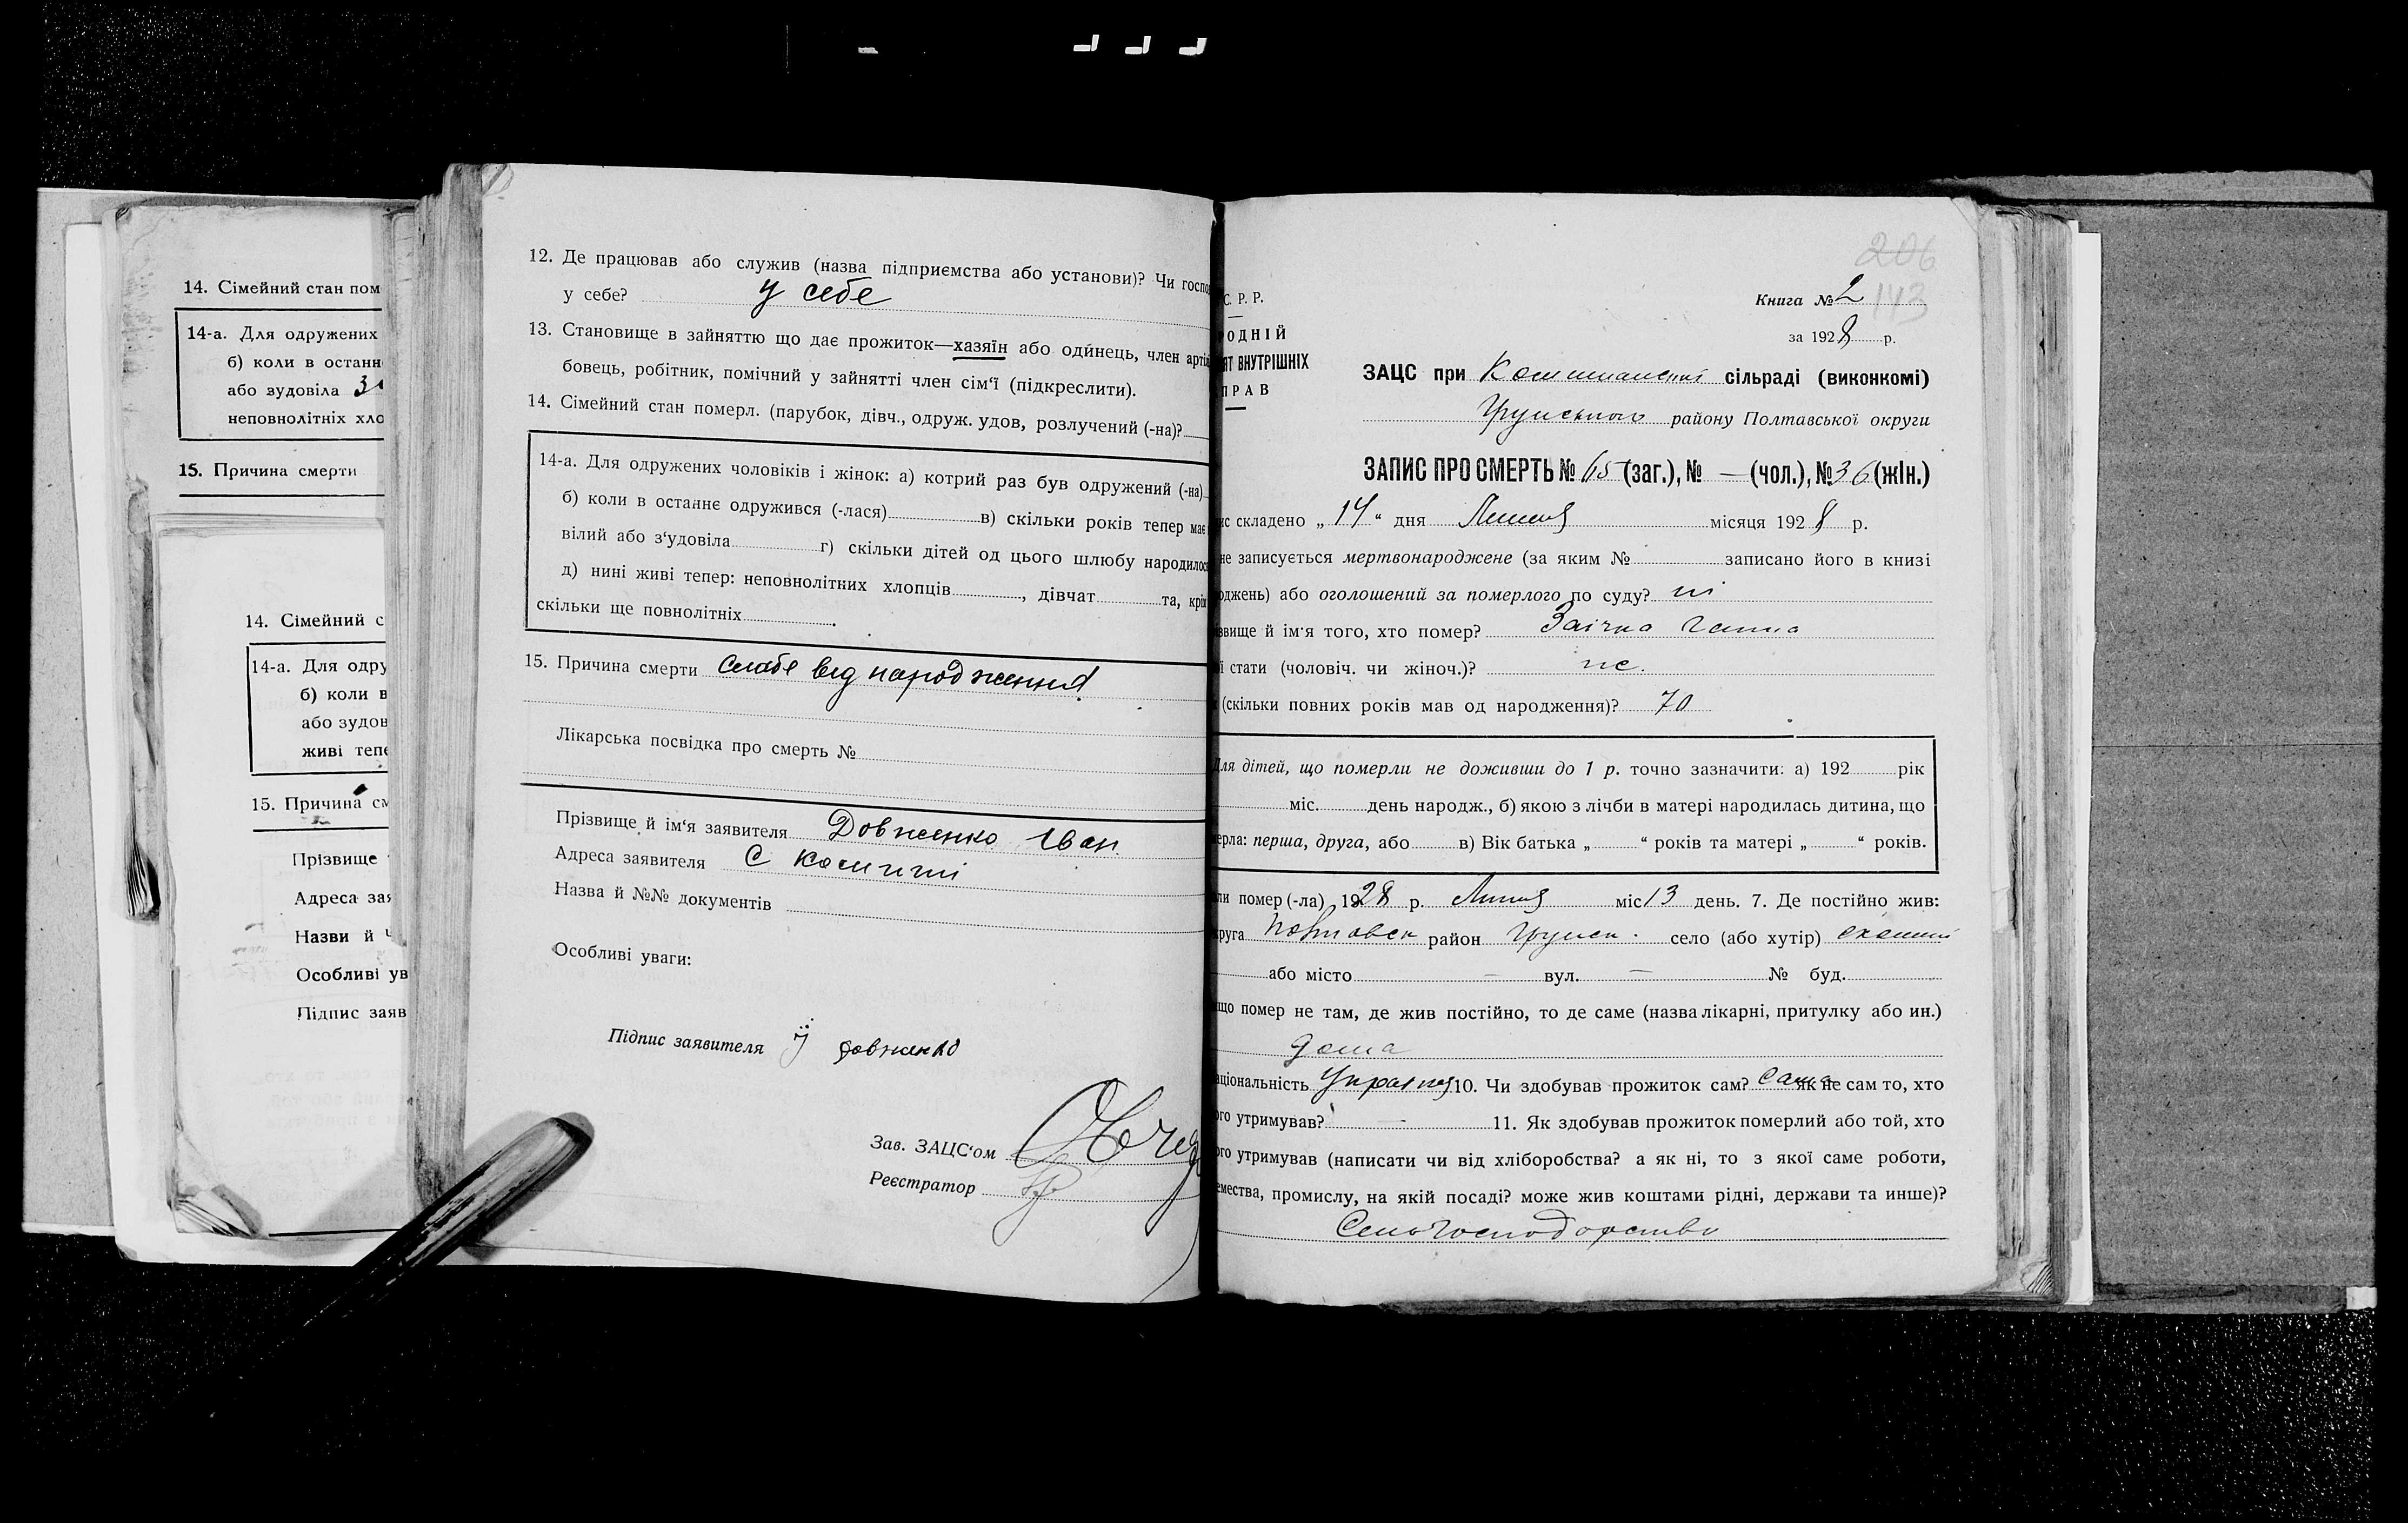 14. Сімейний стан пом
14-а. Для одружених
б) коли в останн
або зудовіла
неповнолітніх хло
15. Причина смерти
14. Сімейний с
14-а. Для одру
б) коли в
або зудов
живі тепе
15. Причина см
Прізвище
Адреса зая
Назви й
Особливі ув
Підпис заяв
12. Де працював або служив (назва підприємства або установи)? Чи госпо
у себе? у себе
13. Становище в зайняттю що дає прожиток—хазяїн або одинець, член артіл
бовець, робітник, помічний у зайнятті член сім‘ї (підкреслити).
14. Сімейний стан померл. (парубок, дівч., одруж. удов, розлучений (-на)?
14-а. Для одружених чоловіків і жінок: а) котрий раз був одружений (-на)
б) коли в останнє одружився (-лася) в) скільки років тепер має
вілий або з‘удовіла г) скільки дітей од цього шлюбу народилос
д) нині живі тепер: неповнолітних хлопців, дівчат та, крім
скільки ще повнолітніх.
15. Причина смерти слабе від народження
Лікарська посвідка про смерть №
Прізвище й ім‘я заявителя Довженко Іван
Адреса заявителя С
Назва й №№ документів
Особливі уваги:
Підпис заявителя Довженко
Зав. ЗАЦС‘ом
Реєстратор
206
С. Р. Р.
Книга № 2 143
РОДНІЙ
за 1928 р.
ЯТ ВНУТРІШНІХ
ПРАВ
ЗАЦС при сільраді (виконкомі)
Грунського району Полтавської округи
ЗАПИС ПРО СМЕРТЬ № 65 (заг.), № — (чол.), № 36 (жін.)
ис складено „14“ дня Липня місяця 1928 р.
не записується мертвонароджене (за яким № записано його в книзі
оджень) або оголошений за померлого по суду? ні
звище й ім‘я того, хто помер? Заічка Ганна
ї стати (чоловіч. чи жіноч.)? ж.
(скільки повних років мав од народження)? 70
Для дітей, що померли не доживши до 1 р. точно зазначити: а) 192 рік
міс. день народж., б) якою з лічби в матері народилась дитина, що
мерла: перша, друга, або в) Вік батька „ “ років та матері „ “ років.
ли помер (-ла) 1928 р. Липня міс 13 день. 7. Де постійно жив:
круга Полтавськ район Грунськ. село (або хутір)
або місто — вул. — № буд.
що помер не там, де жив постійно, то де саме (назва лікарні, притулку або ин.)
дома
аціональність 10. Чи здобував прожиток сам? Сама як не сам то, хто
ого утримував? — 11. Як здобував прожиток померлий або той, хто
ого утримував (написати чи від хліборобства? а як ні, то з якої саме роботи,
емества, промислу, на якій посаді? може жив коштами рідні, держави та инше)?
Сельгосподарство